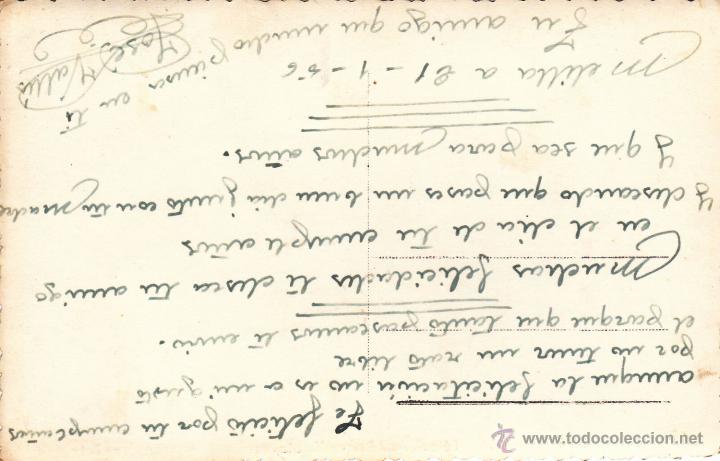 Te felicitó por tu cumpleaños
aunque la felicitación no es a mi gusto
por no tener un rato libre
el parque que tanto paseamos té envio.
Muchas felicidades té desea tu amigo
en el dia de tu cumple años
Y deseando que pases un buen dia junto con tu Madre
Y que sea para Muchos años.
Melilla a 21-1-56
Tu amigo que mucho piensa en ti
José Vallés
www.todocoleccion.net